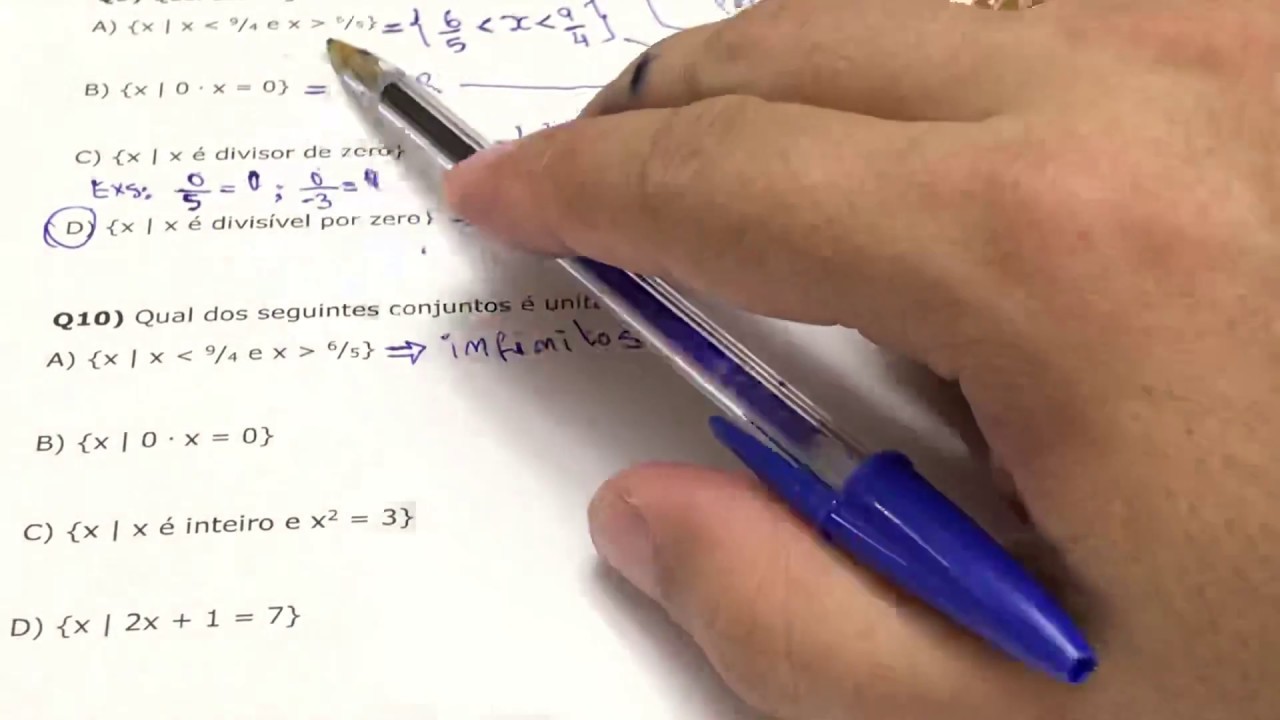 A) {x | x < 9/4 e x > 6/5} = { 6/5 < x < 9/4 }
B) {x | 0 · x = 0} =
C) {x | x é divisor de zero}
Exs: 0/5 = 0 ; 0/-3 =
D) {x | x é divisível por zero}
Q10) Qual dos seguintes conjuntos é
A) {x | x < 9/4 e x > 6/5} ⇒ infinitos
B) {x | 0 · x = 0}
C) {x | x é inteiro e x² = 3}
D) {x | 2x + 1 = 7}